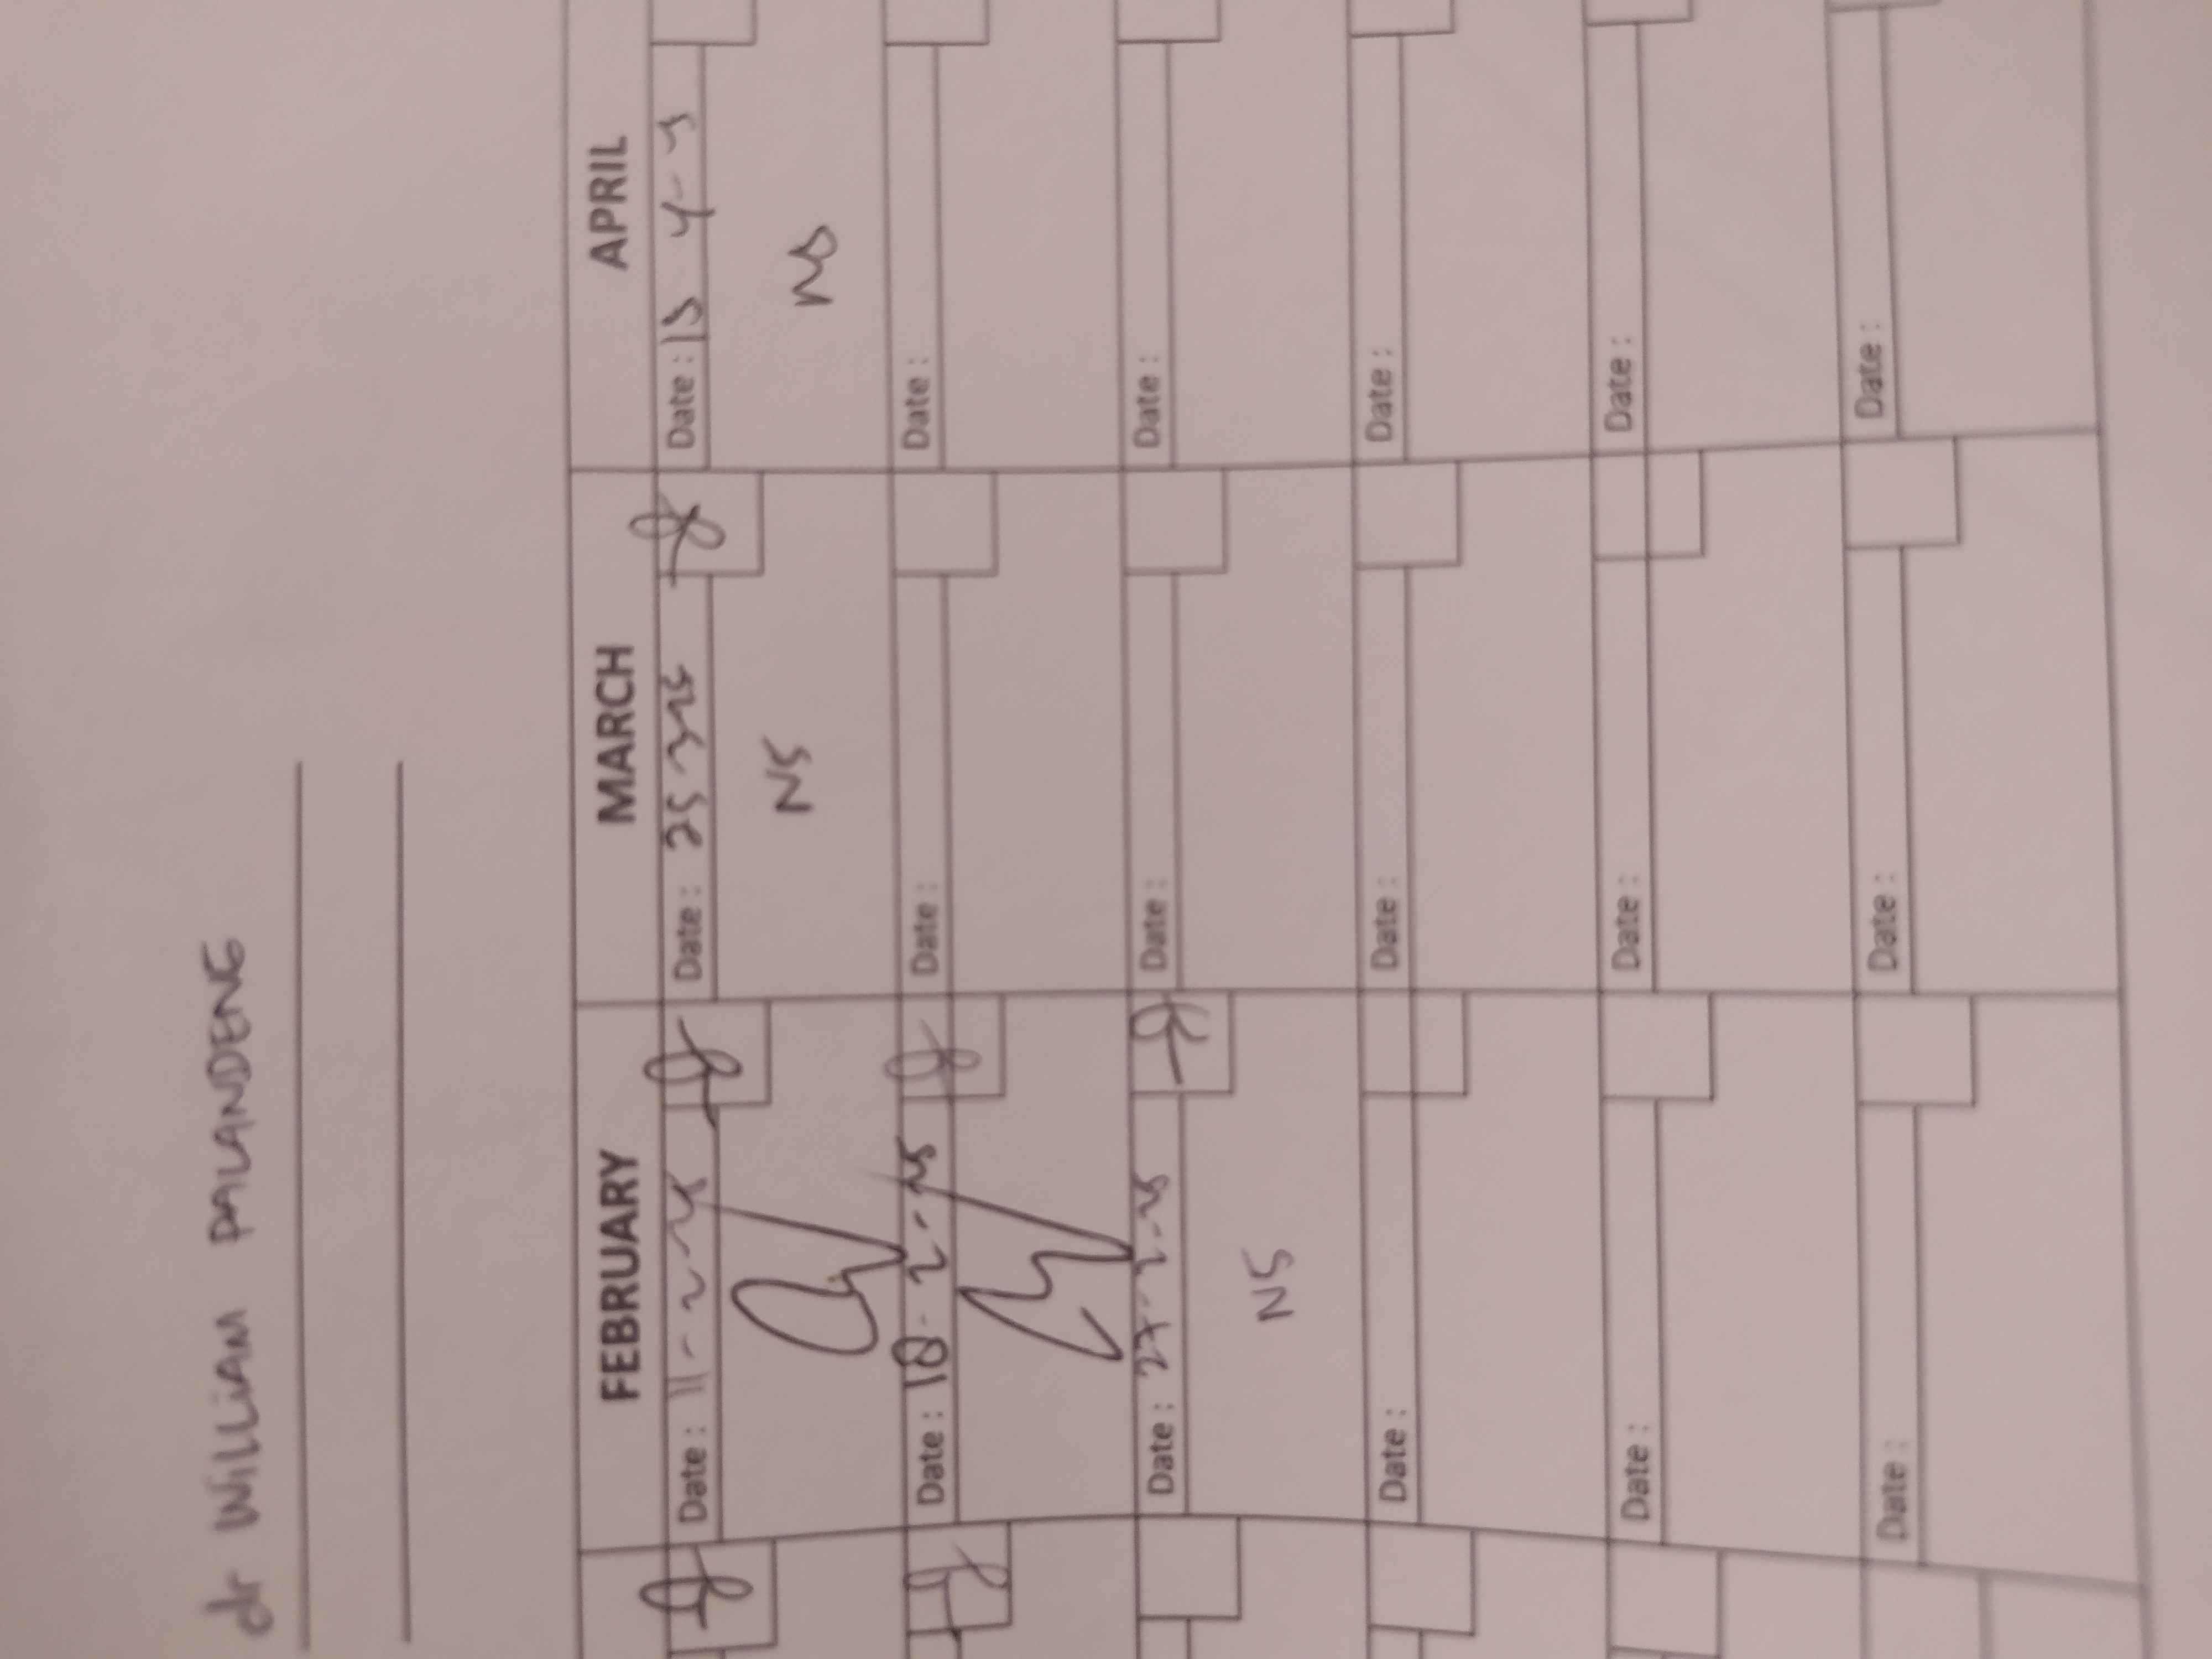 dr WILLIAM PALANDENG
FEBRUARY MARCH APRIL
Date: 11-2-25 Date: 25 3 25 Date: 15 4-
NS NS
Date: 18-2-25 Date: Date:
Date: 27-2-25 Date: Date:
NS
Date: Date: Date:
Date: Date: Date:
Date: Date: Date: